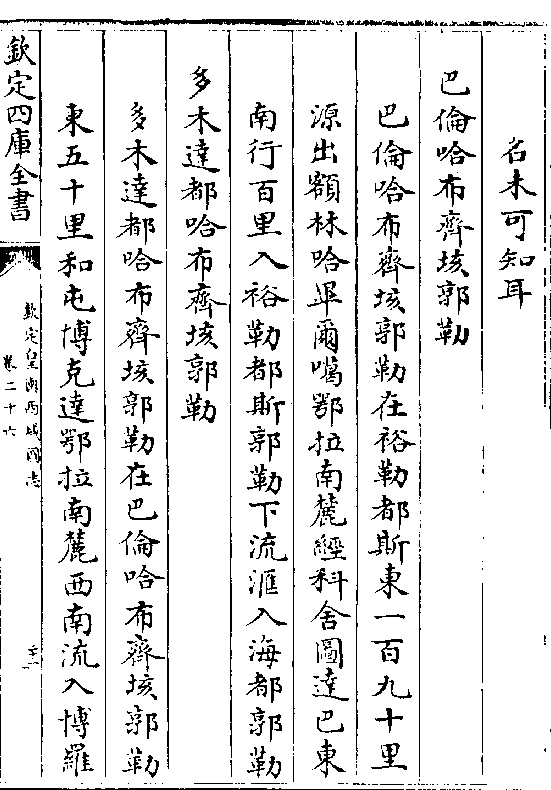 名未可知耳
巴倫哈布齊垓郭勒
巴倫哈布齊垓郭勒在裕勒都斯東一百九十里
源出額林哈畢爾噶鄂拉南麓經科舍圖達巴東
南行百里入裕勒都斯郭勒下流滙入海都郭勒
多木達都哈布齊垓郭勒
多木達都哈布齊垓郭勒在巴倫哈布齊垓郭勒
東五十里和屯博克達鄂拉南麓西南流入博羅
欽定四庫全書
欽定皇輿西域圖志
卷二十六